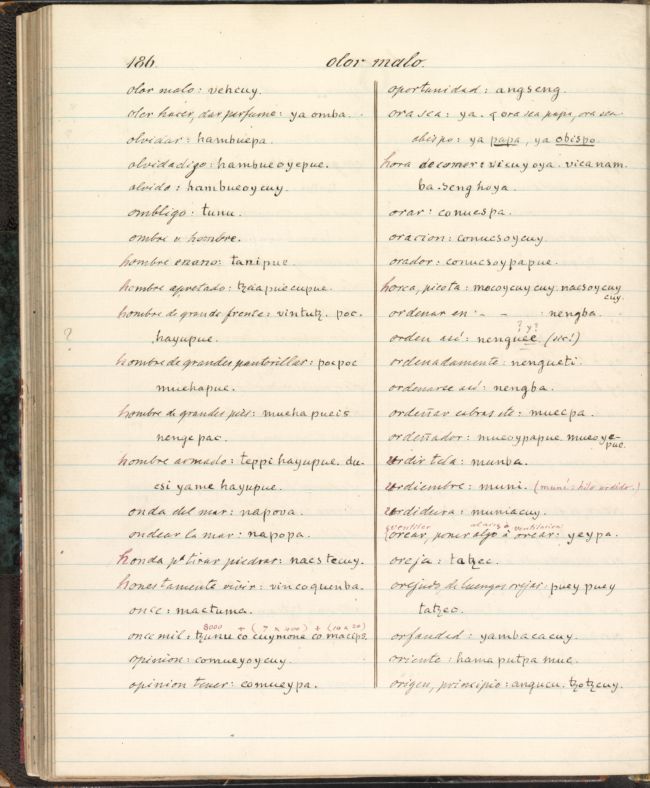 186
olor malo.
olor malo: vehcuy.
olor hacer, dar perfume: ya omba.
olvidar: hambuepa.
olvidadizo: hambueoyepue.
olvido: hambueoycuy.
ombligo: tunu.
ombre v hombre.
hombre enano: tanipue.
hombre apretado: tzaapuecupue.
hombre de grande frente: vintutz. poc.
? hayupue.
hombre de grandes pantorillas: pocpoc
muehapue.
hombre de grandes pies: mueha pueis
nenge pac.
hombre armado: teppi hayupue. du-
csi yame hayupue.
onda del mar: napova.
ondear la mar: napopa.
honda pa tirar piedras: naestecuy.
honestamente vivir: vincoquenba.
once: mactuma.
8000 + (7 x 400) + (10 x 20)
once mil: tzunu co cuymone co maceps.
opinion: comueyoycuy.
opinion tener: comueypa.
oportunidad: angseng.
ora sea: ya. q ora sea papa, ora sea
obispo: ya papa, ya obispo.
hora de comer: vicuy oya. vicanam-
ba-senghoya.
orar: conuespa.
oracion: conucsoycuy.
orador: conucsoypapue.
horca, picota: mocoycuy cuy. nacsoycuy
cuy.
ordenar en - - : nengba.
? y?
orden asi: nenguee. (sic!)
ordenadamente: nengueti.
ordenarse asi: nengba.
ordeñar cabras etc: muecpa.
ordeñador: mucoypapue. mucoye-
pue.
urdir tela: munba.
urdiembre: muni. (muni: hilo urdido.)
urdidera: muniacuy.
(ventiler al aire à ventilation)
orear, poner algo à orear: yeypa.
oreja: tatzec.
orejudo, de luengas orejas: puey puey
tatzec.
orfandad: yambacacuy.
oriente: hama putpa mue.
origen, principio: angucu. tzotzcuy.